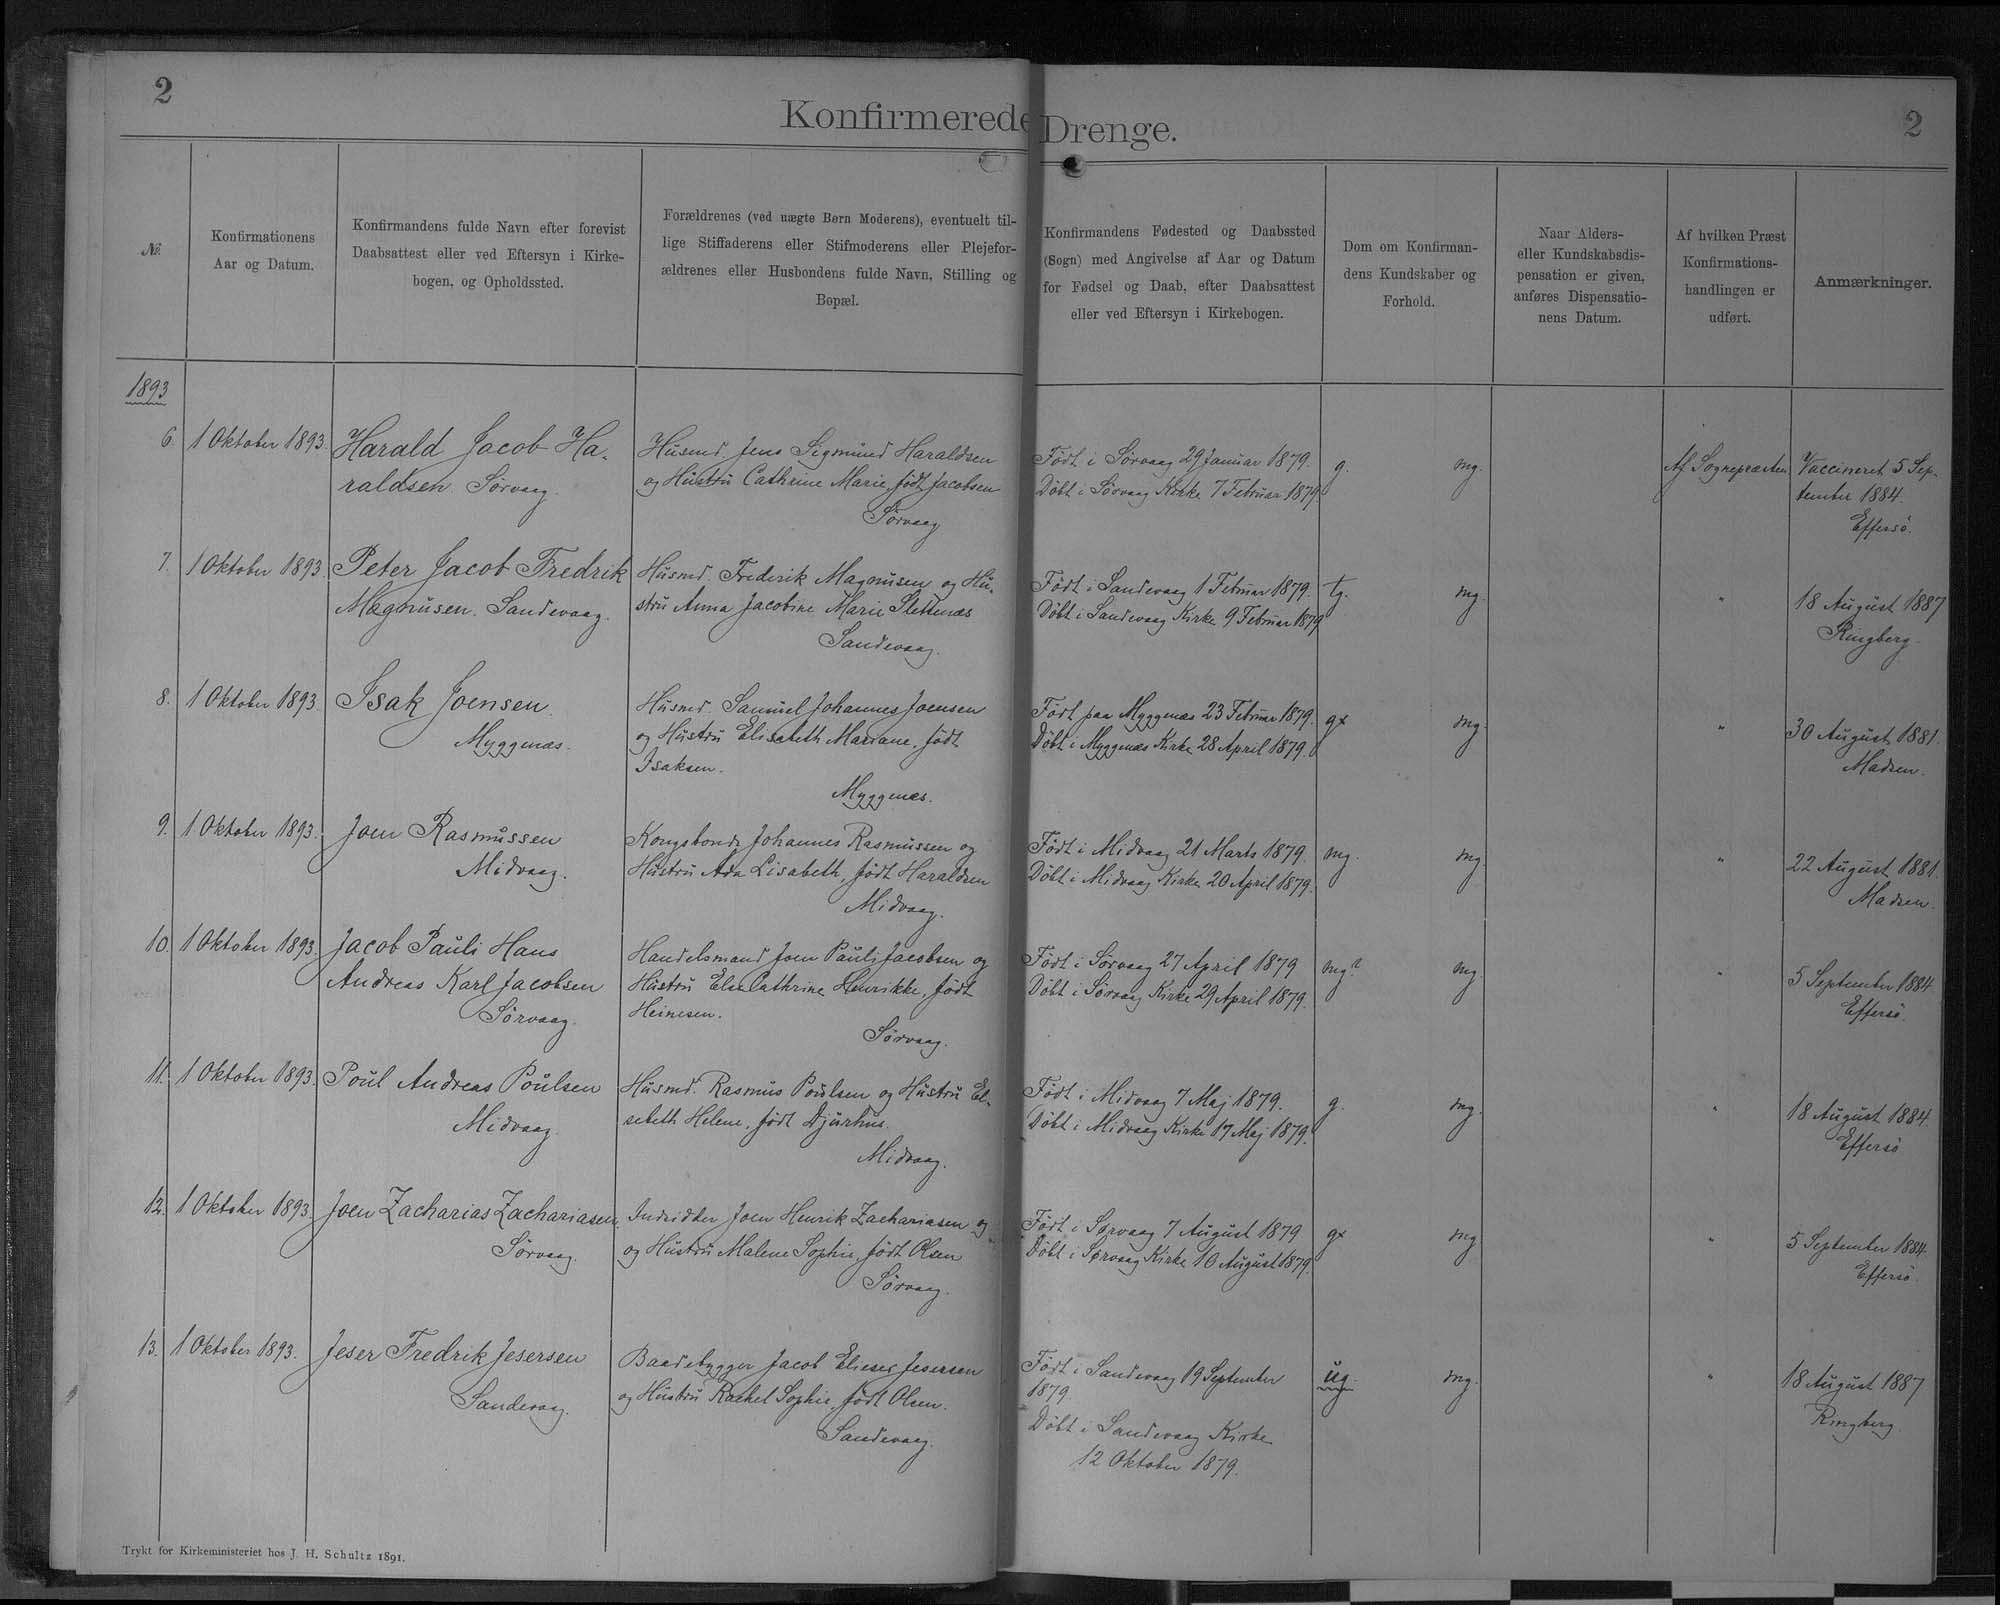 2
Konfirmerede Drenge.
2
№.
Konfirmationens
Aar og Datum.
Konfirmandens fulde Navn efter forevist
Daabsattest eller ved Eftersyn i Kirke-
bogen, og Opholdssted.
Forældrenes (ved uægte Børn Moderens), eventuelt til-
lige Stiffaderens eller Stifmoderens eller Plejefor-
ældrenes eller Husbondens fulde Navn, Stilling og
Bopæl.
Konfirmandens Fødested og Daabssted
(Sogn) med Angivelse af Aar og Datum
for Fødsel og Daab, efter Daabsattest
eller ved Eftersyn i Kirkebogen.
Dom om Konfirman-
dens Kundskaber og
Forhold.
Naar Alders-
eller Kundskabsdis-
pensation er given,
anføres Dispensatio-
nens Datum.
Af hvilken Præst
Konfirmations-
handlingen er
udført.
Anmærkninger.
1893
6.
1 Oktober 1893.
Harald Jacob Ha-
raldsen Sörvaag.
Husmd. Jens Sigmund Haraldsen
og Hustru Cathrine Marie, født Jacobsen
Sörvaag
Født i Sörvaag 29 Januar 1879.
Döbt i Sörvaag Kirke 7 Februar 1879
g.
mg.
Af Sognepræsten
Vaccineret 5 Sep-
tember 1884.
Effersö.
7.
1 Oktober 1893.
Peter Jacob Fredrik
Magnusen. Sandevaag.
Husmd. Frederik Magnusen og Hu-
stru Anna Jacobine Marie Slettenæs
Sandevaag.
Født i Sandevaag 1 Februar 1879.
Döbt i Sandevaag Kirke 9 Februar 1879
tg.
mg.
"
18 August 1887
Ringberg.
8.
1 Oktober 1893.
Isak Joensen.
Myggenæs.
Husmd. Samuel Johannes Joensen
og Hustru Elisabeth Mariane, født
Isaksen.
Myggenæs.
Født paa Myggenæs 23 Februar 1879.
Döbt i Myggenæs Kirke 28 April 1879.
gx
mg.
"
30 August 1881.
Madsen.
9.
1 Oktober 1893.
Joen Rasmussen
Midvaag.
Kongsbonde Johannes Rasmussen og
Hustru Ada Lisabeth, født Haraldsen
Midvaag.
Født i Midvaag 21 Marts 1879.
Döbt i Midvaag Kirke 20 April 1879.
mg.
mg.
"
22 August 1881.
Madsen.
10.
1 Oktober 1893.
Jacob Pauli Hans
Andreas Karl Jacobsen
Sörvaag.
Handelsmand Joen Pauli Jacobsen og
Hustru Else Cathrine Henrikke, født
Heinesen.
Sörvaag.
Født i Sörvaag 27 April 1879
Döbt i Sörvaag Kirke 29 April 1879.
mg?
mg.
"
5 September 1884
Effersö.
11.
1 Oktober 1893.
Poul Andreas Poulsen
Midvaag.
Husmd. Rasmus Poulsen og Hustru El-
sebeth Helene, født Djurhus.
Midvaag.
Født i Midvaag 7 Maj 1879.
Döbt i Midvaag Kirke 17 Maj 1879.
g.
mg.
"
18 August 1884.
Effersö
12.
1 Oktober 1893.
Joen Zacharias Zachariasen.
Sörvaag.
Indsidder Joen Henrik Zachariasen og
og Hustru Malene Sophie, født Olsen
Sörvaag.
Født i Sørvaag 7 August 1879
Döbt i Sørvaag Kirke 10 August 1879.
gx
mg
"
5 September 1884.
Effersö.
13.
1 Oktober 1893.
Jeser Fredrik Jesersen
Sandevaag.
Baadebygger Jacob Elieser Jesersen
og Hustru Rachel Sophie, født Olsen.
Sandevaag.
Født i Sandevaag 19 September
1879.
Döbt i Sandevaag Kirke
12 Oktober 1879.
ug.
mg.
"
18 August 1887
Ringberg
Trykt for Kirkeministeriet hos J. H. Schultz 1891.